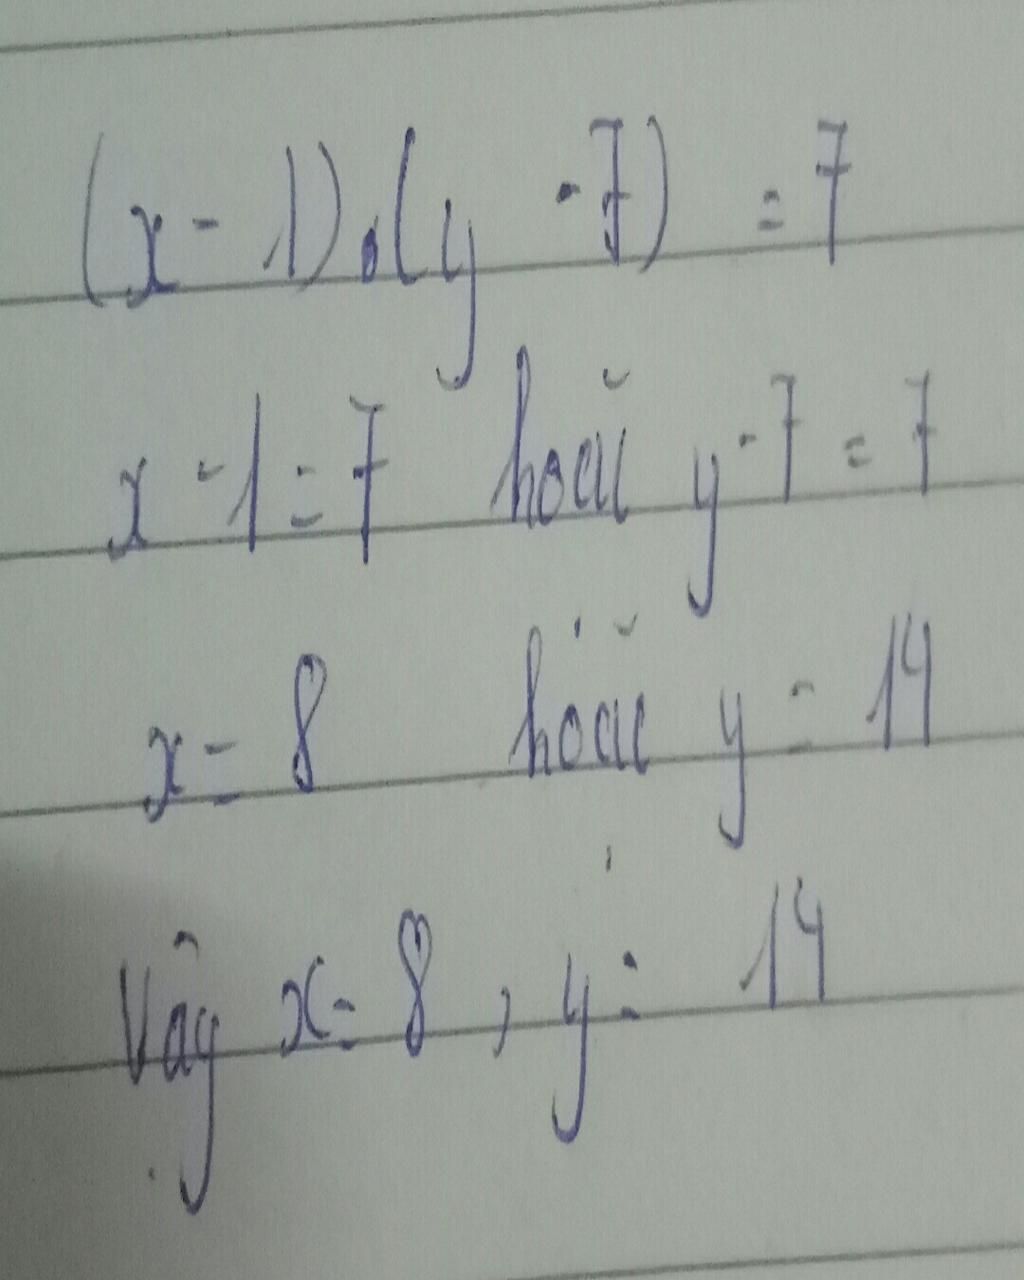 (x - 1).(y - 7) = 7
x - 1 = 7 hoặc y - 7 = 7
x = 8 hoặc y = 14
Vậy x = 8, y = 14